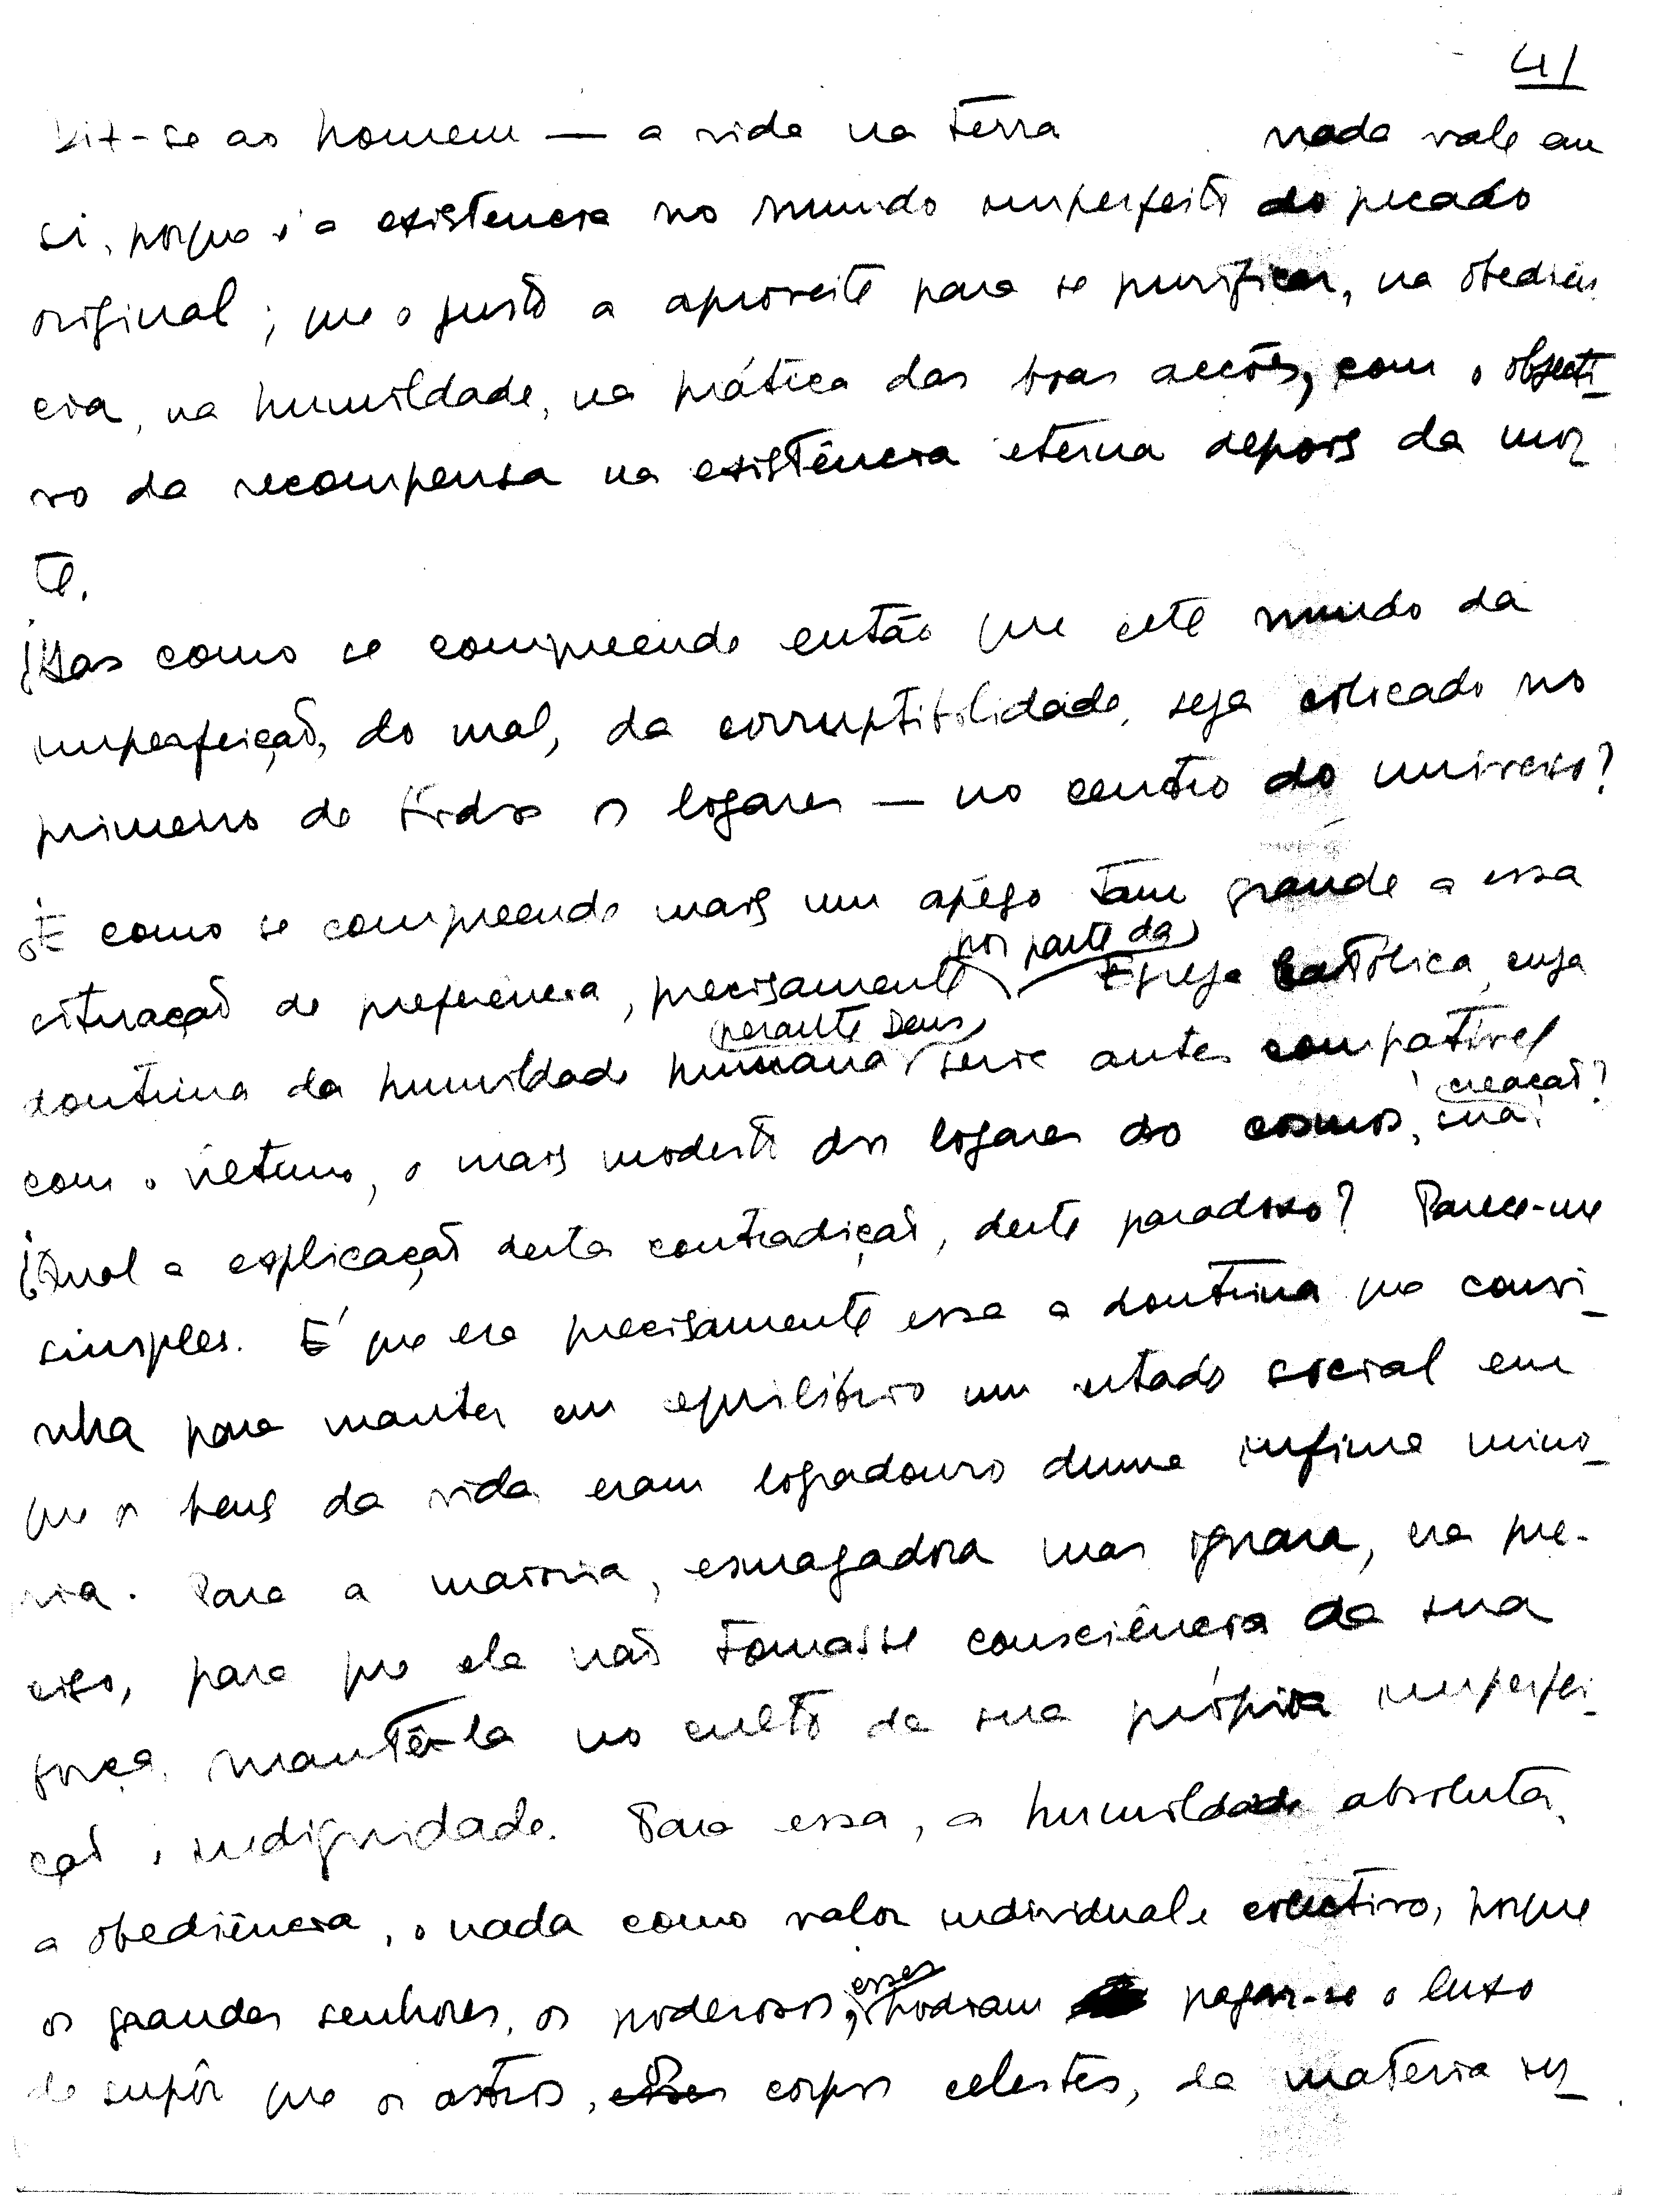 41
Diz-se ao homem — a vida na terra nada vale em
si, porque é a existencia no mundo imperfeito do pecado
original; que o justo a aproveite para se purificar, na obediên
cia, na humildade, na prática das boas acções, com o objecti-
vo da recompensa na existência eterna depois da mor
te.
¿Mas como se compreende então que este mundo da
imperfeição, do mal, da corruptibilidade, seja colicado no
primeiro de todos os logares — no centro do universo?
¿E como se compreende mais um apêgo tam grande a essa
situação de preferencia, precisamente por parte da Egreja Católica, cuja
doutrina da humildade humana perante Deus seria antes compatível
com o último, o mais modesto dos logares do cosmos, sua creação?
¿Qual a explicação desta contradição, deste paradoxo? Parece-me
simples. É que era precisamente essa a doutrina que convi-
nha para manter em equilíbrio um estado social em
que os bens da vida eram logradouro duma infima mino-
ria. Para a maioria, esmagadora mas ignara, era pre-
ciso, para que ela não tomasse consciência da sua
força, mantê-la no culto da sua própria imperfei-
ção e indignidade. Para essa, a humildade absoluta,
a obediência, o nada como valor individual e colectivo, porque
os grandes senhores, os poderosos, esses podiam pagar-se o luxo
de supôr que os astros, os corpos celestes, da materia ser-